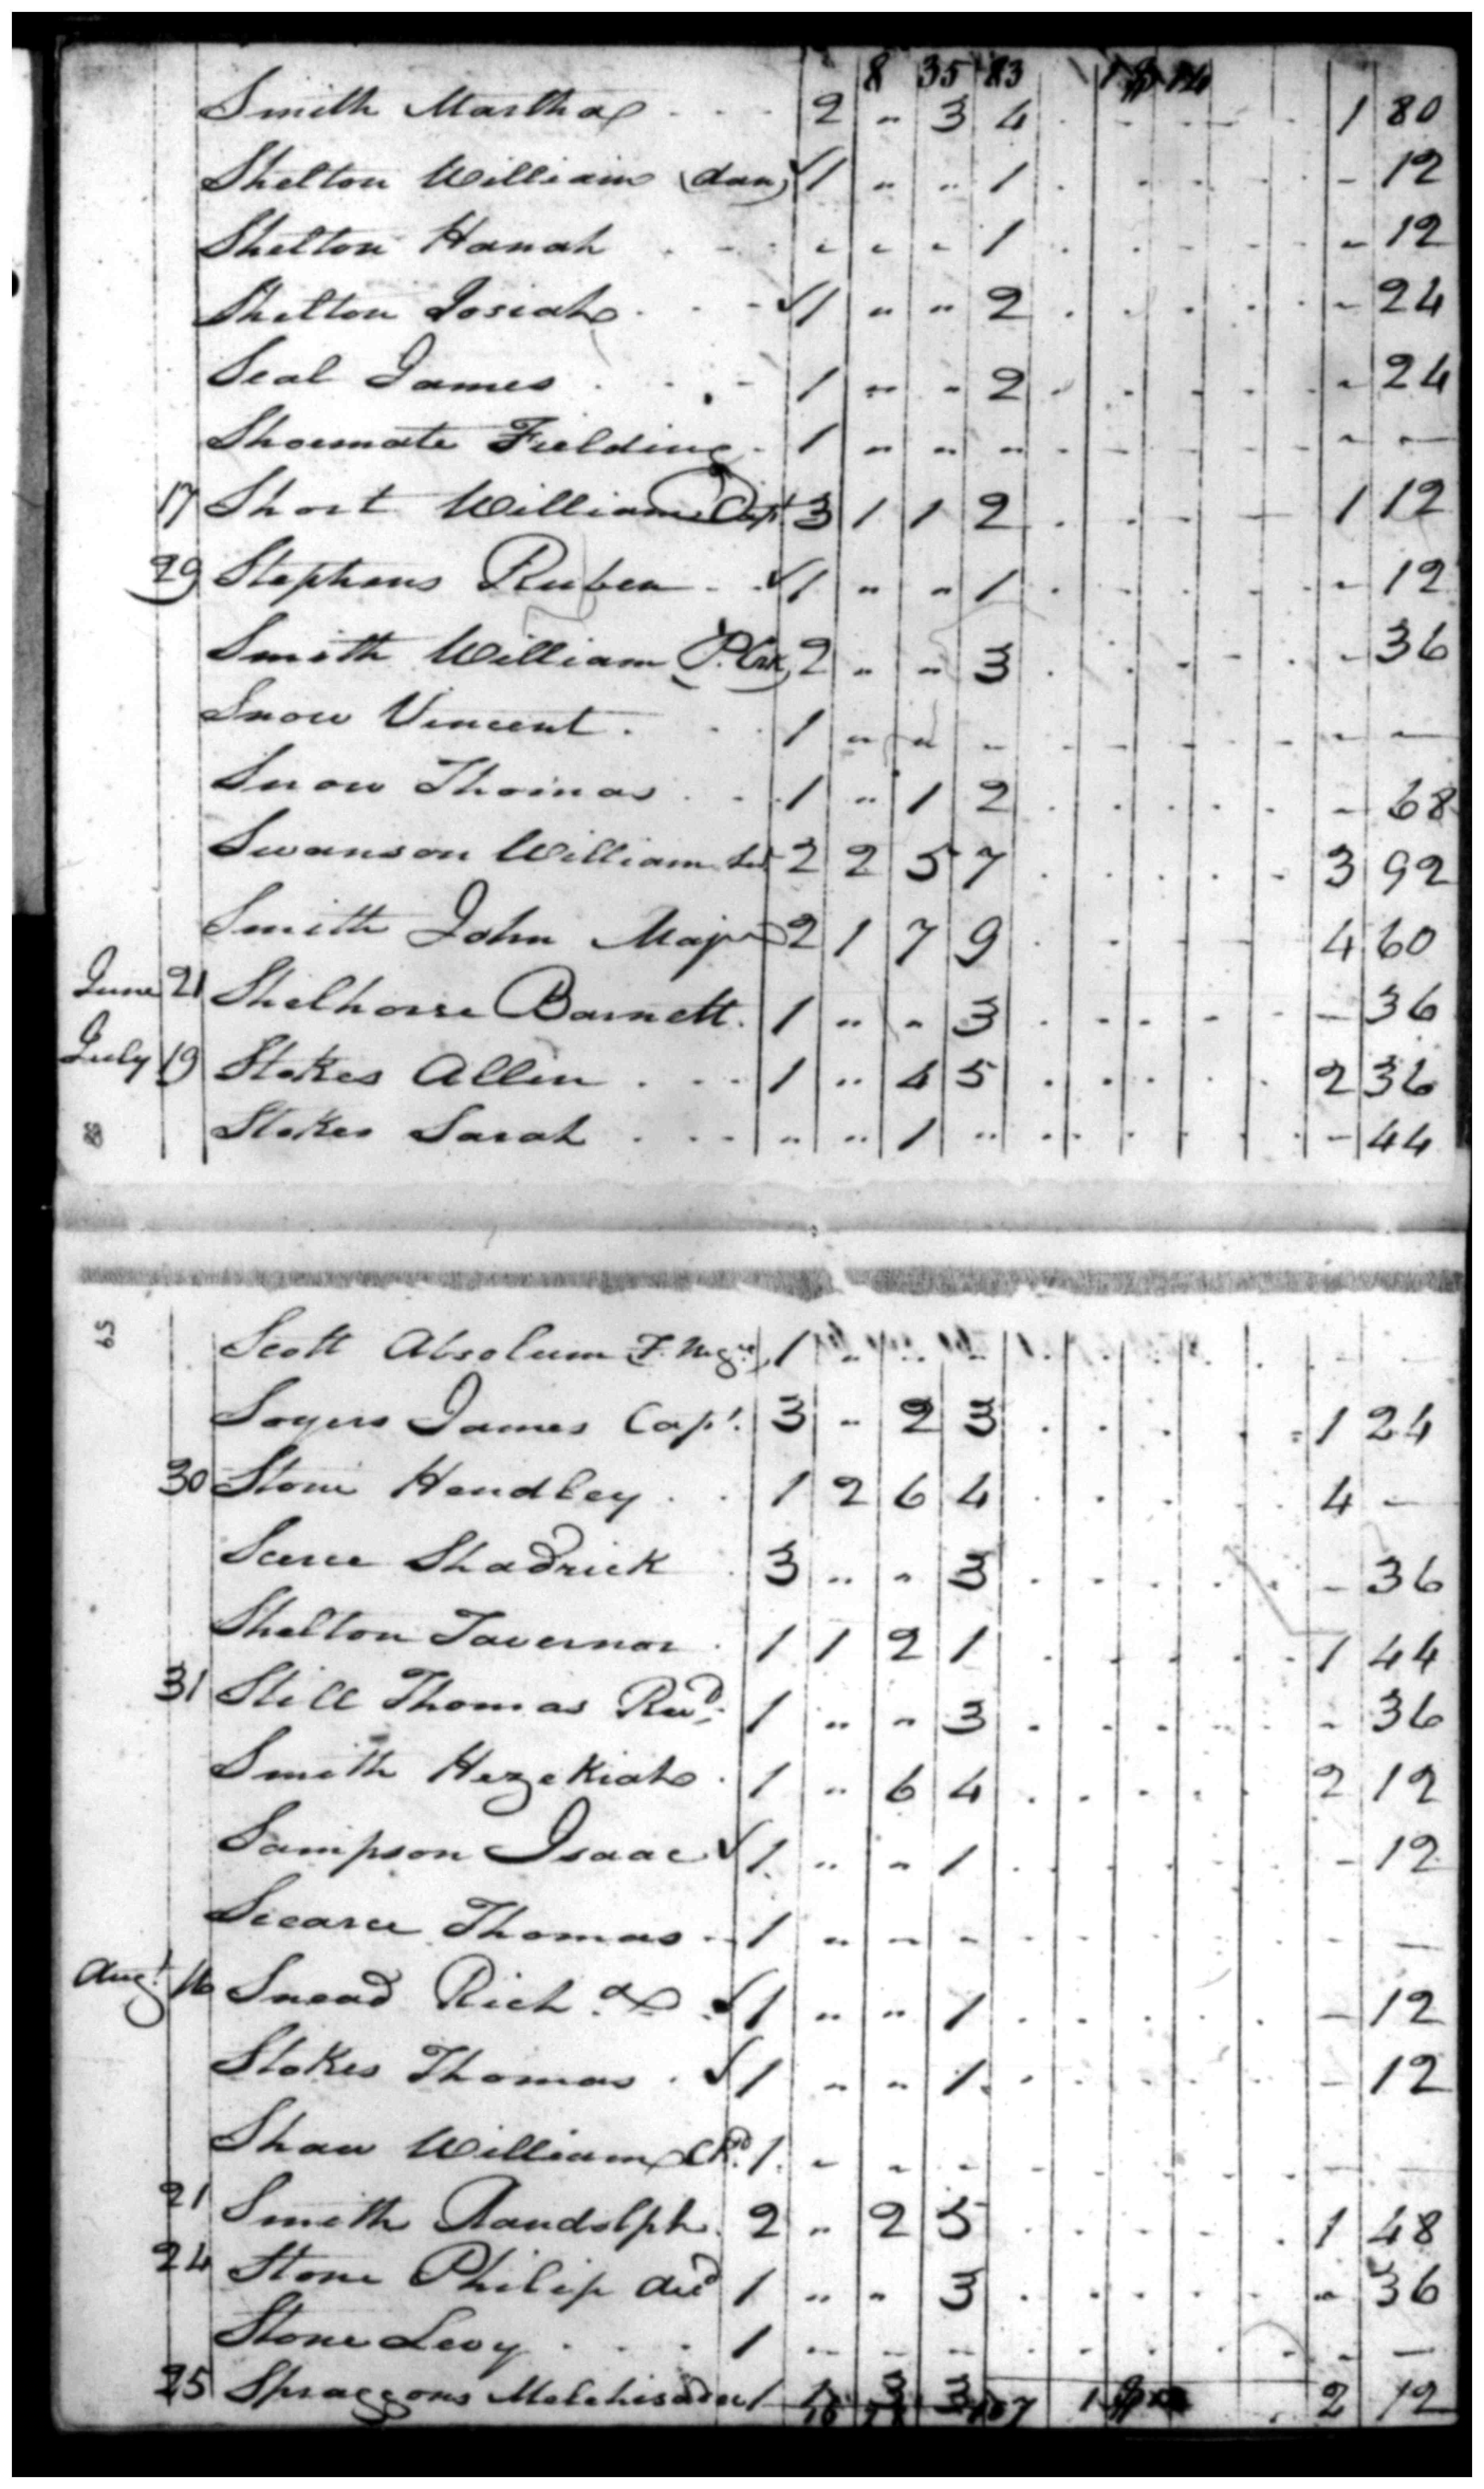 8 35 83
Smith Martha 2 " 3 4 1 80
Shelton William (dan) ✓ 1 " " 1 - 12
Shelton Hanah - - - 1 - 12
Shelton Josiah ✓ 1 " " 2 - 24
Seal James 1 " - 2 - 24
Shoemate Fielding 1 " " " - —
17 Short William Capt 3 1 1 2 1 12
29 Stephens Ruben ✓ 1 " " 1 - 12
Smith William (P. Crk) 2 " " 3 - 36
Snow Vincent 1 " " - - —
Snow Thomas 1 " 1 2 - 68
Swanson William 2 2 5 7 3 92
Smith John Major 2 1 7 9 4 60
June 21 Shelhorse Barnett 1 " - 3 - 36
July 19 Stokes Allen 1 " 4 5 2 36
Stokes Sarah " " 1 " - 44
65
Scott Absolum F. Negro 1 " " - - -
Soyers James Capt. 3 - 2 3 1 24
30 Stone Hendley 1 2 6 4 4 —
Scerce Shadrick 3 " " 3 - 36
Shelton Tavernor 1 1 2 1 1 44
31 Still Thomas Revd. 1 " " 3 - 36
Smith Hezekiah 1 " 6 4 2 12
Sampson Isaac ✓ 1 " " 1 - 12
Scearce Thomas 1 " " - - —
Augt. 16 Snead Rich. ✓ 1 " " 1 - 12
Stokes Thomas ✓ 1 " " 1 - 12
Shaw William 1 - - - - —
21 Smith Randolph 2 " 2 5 1 48
24 Stone Philip decd 1 " " 3 - 36
Stone Levy 1 - - - - —
25 Spraggons Melchisaden 1 3 3 2 12